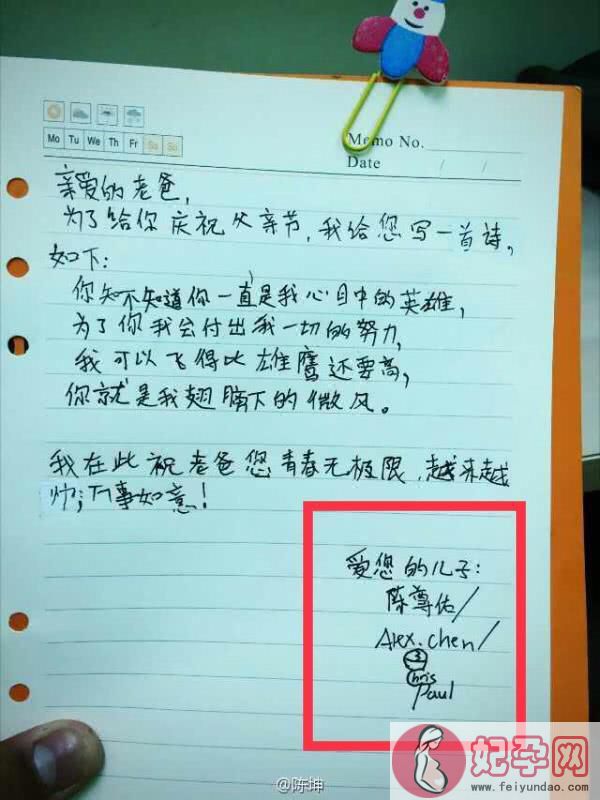 Mo Tu We Th Fr Sa Su
Memo No.
Date / /
亲爱的老爸,
为了给你庆祝父亲节,我给您写一首诗,
如下:
你知不知道你一直是我心目中的英雄,
为了你我会付出我一切的努力,
我可以飞得比雄鹰还要高,
你就是我翅膀下的微风。
我在此祝老爸您青春无极限,越来越
帅;万事如意!
爱您的儿子:
陈尊佑/
Alex.chen/
3
Chris
Paul
@陈坤
妃孕网
www.feiyundao.com